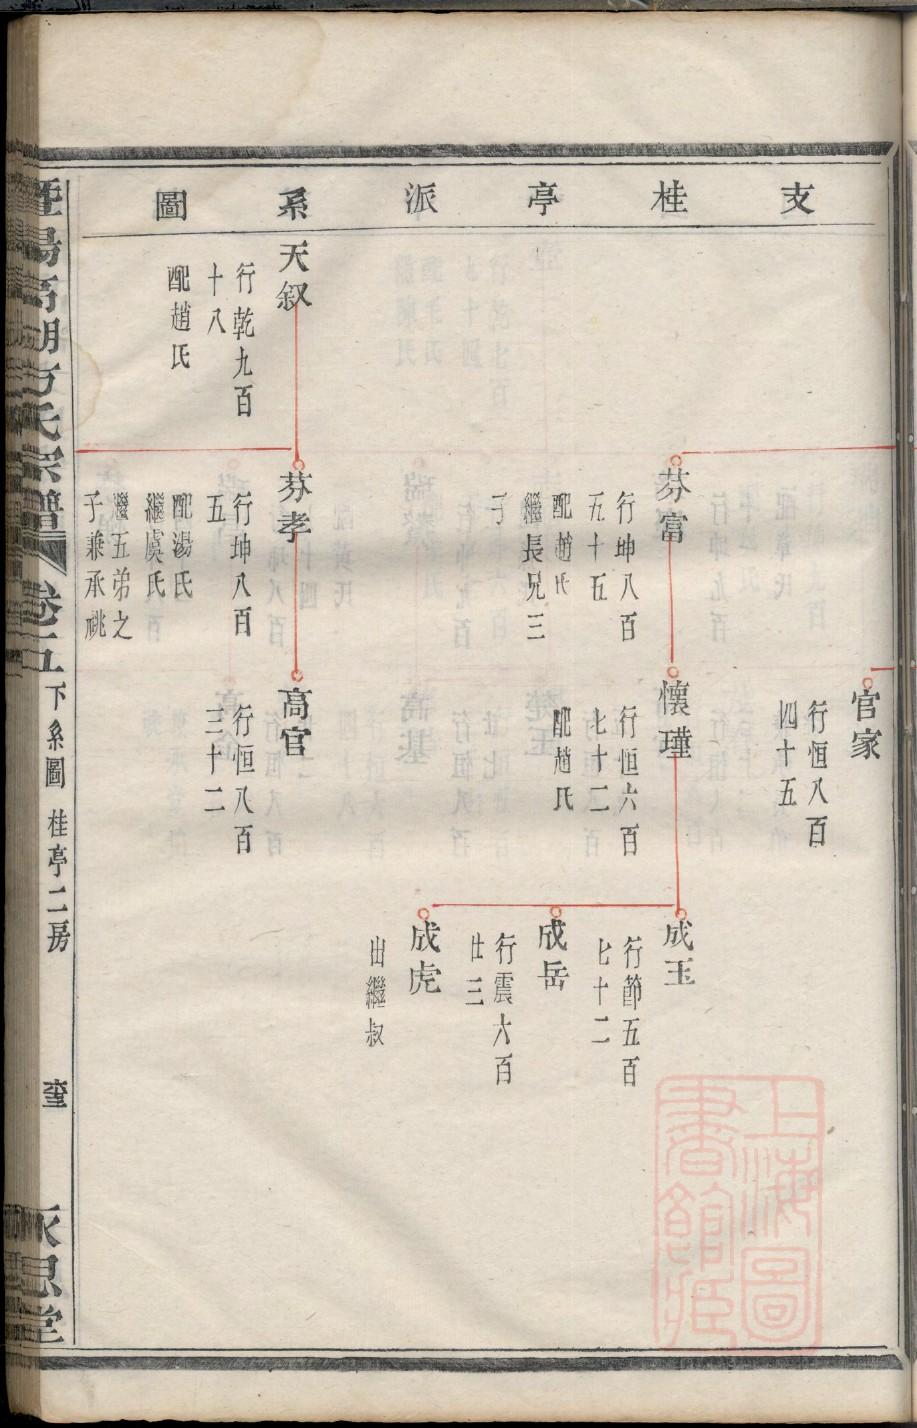 支桂亭派系圖
官家
行恒八百
四十五
芬富
行坤八百
五十五
配趙氏
繼長兄三
子
懷瑾
行恒六百
七十二
配趙氏
成玉
行節五百
七十二
成岳
行震六百
廿三
成虎
出繼叔
天叙
行乾九百
十八
配趙氏
芬孝
行坤八百
五
配湯氏
繼虞氏
繼五弟之
子兼承祧
高官
行恒八百
三十二
暨陽高湖方氏宗譜 卷十五 下系圖 桂亭二房
永思堂
上海圖
書館藏